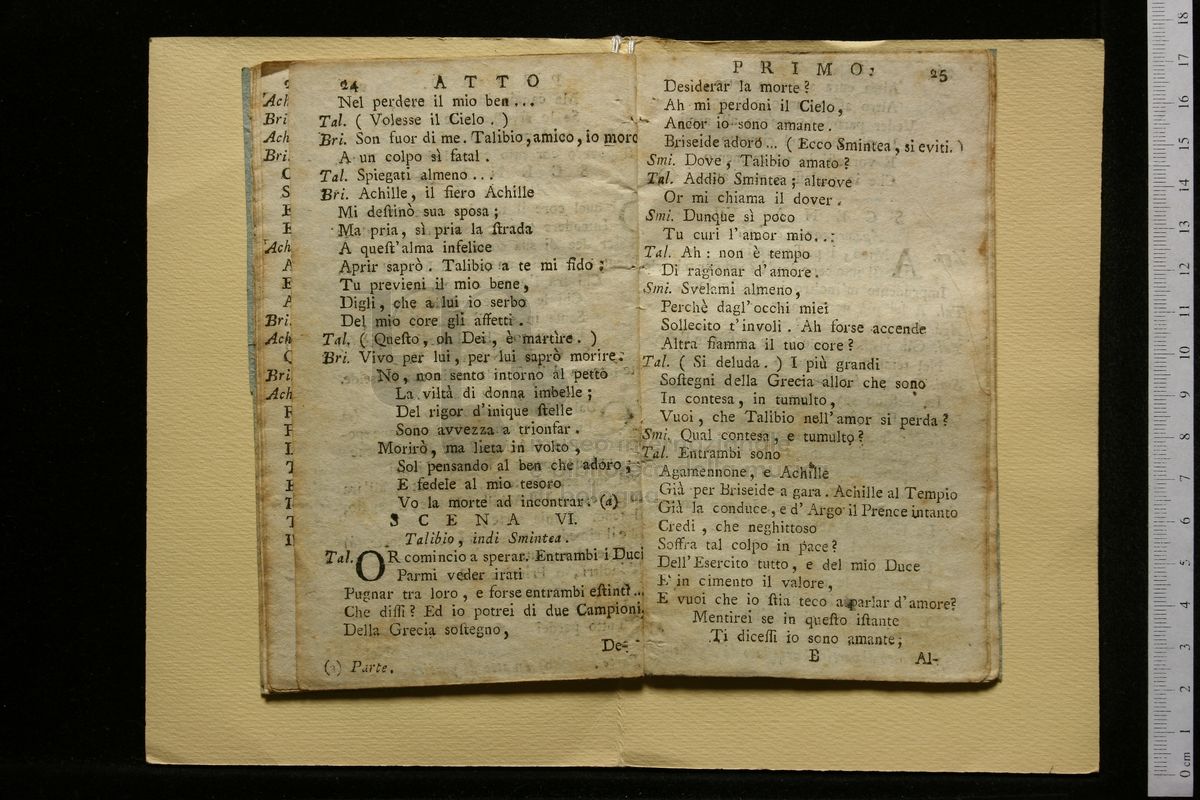 24 ATTO
Nel perdere il mio ben...
Tal. ( Volesse il Cielo. )
Bri. Son fuor di me. Talibio, amico, io moro
A un colpo sì fatal.
Tal. Spiegati almeno...
Bri. Achille, il fiero Achille
Mi destinò sua sposa;
Ma pria, sì pria la strada
A quest'alma infelice
Aprir saprò. Talibio a te mi fido;
Tu previeni il mio bene,
Digli, che a lui io serbo
Del mio core gli affetti.
Tal. ( Questo, oh Dei, è martìre. )
Bri. Vivo per lui, per lui saprò morire.
No, non sento intorno al petto
La viltà di donna imbelle;
Del rigor d'inique stelle
Sono avvezza a trionfar.
Morirò, ma lieta in volto,
Sol pensando al ben che adoro,
E fedele al mio tesoro
Vo la morte ad incontrar. (a)
SCENA VI.
Talibio, indi Smintea.
Tal. OR comincio a sperar. Entrambi i Duci
Parmi veder irati
Pugnar tra loro, e forse entrambi estinti...
Che dissi? Ed io potrei di due Campioni
Della Grecia sostegno,
De-
(a) Parte.
PRIMO. 25
Desiderar la morte?
Ah mi perdoni il Cielo,
Ancor io sono amante.
Briseide adoro... ( Ecco Smintea, si eviti. )
Smi. Dove, Talibio amato?
Tal. Addio Smintea; altrove
Or mi chiama il dover.
Smi. Dunque sì poco
Tu curi l'amor mio...
Tal. Ah: non è tempo
Di ragionar d'amore.
Smi. Svelami almeno,
Perchè dagl'occhi miei
Sollecito t'involi. Ah forse accende
Altra fiamma il tuo core?
Tal. ( Si deluda. ) I più grandi
Sostegni della Grecia allor che sono
In contesa, in tumulto,
Vuoi, che Talibio nell'amor si perda?
Smi. Qual contesa, e tumulto?
Tal. Entrambi sono
Agamennone, e Achille
Già per Briseide a gara. Achille al Tempio
Già la conduce, e d'Argo il Prence intanto
Credi, che neghittoso
Soffra tal colpo in pace?
Dell'Esercito tutto, e del mio Duce
E' in cimento il valore,
E vuoi che io stia teco a parlar d'amore?
Mentirei se in questo istante
Ti dicessi io sono amante;
E Al-